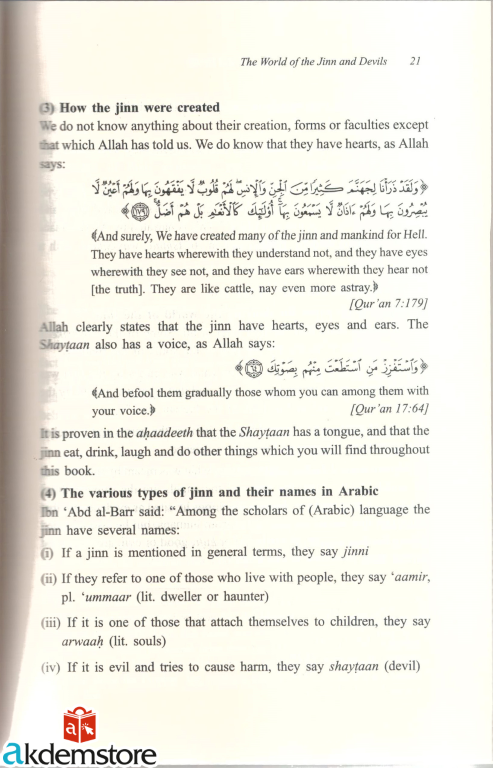 The World of the Jinn and Devils 21
(3) How the jinn were created
We do not know anything about their creation, forms or faculties except
that which Allah has told us. We do know that they have hearts, as Allah
says:
﴿وَلَقَدْ ذَرَأْنَا لِجَهَنَّمَ كَثِيرًا مِّنَ ٱلْجِنِّ وَٱلْإِنسِ ۖ لَهُمْ قُلُوبٌ لَّا يَفْقَهُونَ بِهَا وَلَهُمْ أَعْيُنٌ لَّا
يُبْصِرُونَ بِهَا وَلَهُمْ ءَاذَانٌ لَّا يَسْمَعُونَ بِهَا ۚ أُو۟لَٰٓئِكَ كَٱلْأَنْعَٰمِ بَلْ هُمْ أَضَلُّ ۚ ﴿١٧٩﴾﴾
﴾And surely, We have created many of the jinn and mankind for Hell.
They have hearts wherewith they understand not, and they have eyes
wherewith they see not, and they have ears wherewith they hear not
[the truth]. They are like cattle, nay even more astray.﴿
[Qur'an 7:179]
Allah clearly states that the jinn have hearts, eyes and ears. The
Shayṭaan also has a voice, as Allah says:
﴿وَٱسْتَفْزِزْ مَنِ ٱسْتَطَعْتَ مِنْهُم بِصَوْتِكَ ﴿٦٤﴾﴾
﴾And befool them gradually those whom you can among them with
your voice.﴿ [Qur'an 17:64]
It is proven in the aḥaadeeth that the Shayṭaan has a tongue, and that the
jinn eat, drink, laugh and do other things which you will find throughout
this book.
(4) The various types of jinn and their names in Arabic
Ibn 'Abd al-Barr said: "Among the scholars of (Arabic) language the
jinn have several names:
(i) If a jinn is mentioned in general terms, they say jinni
(ii) If they refer to one of those who live with people, they say 'aamir,
pl. 'ummaar (lit. dweller or haunter)
(iii) If it is one of those that attach themselves to children, they say
arwaaḥ (lit. souls)
(iv) If it is evil and tries to cause harm, they say shayṭaan (devil)
a
akdemstore